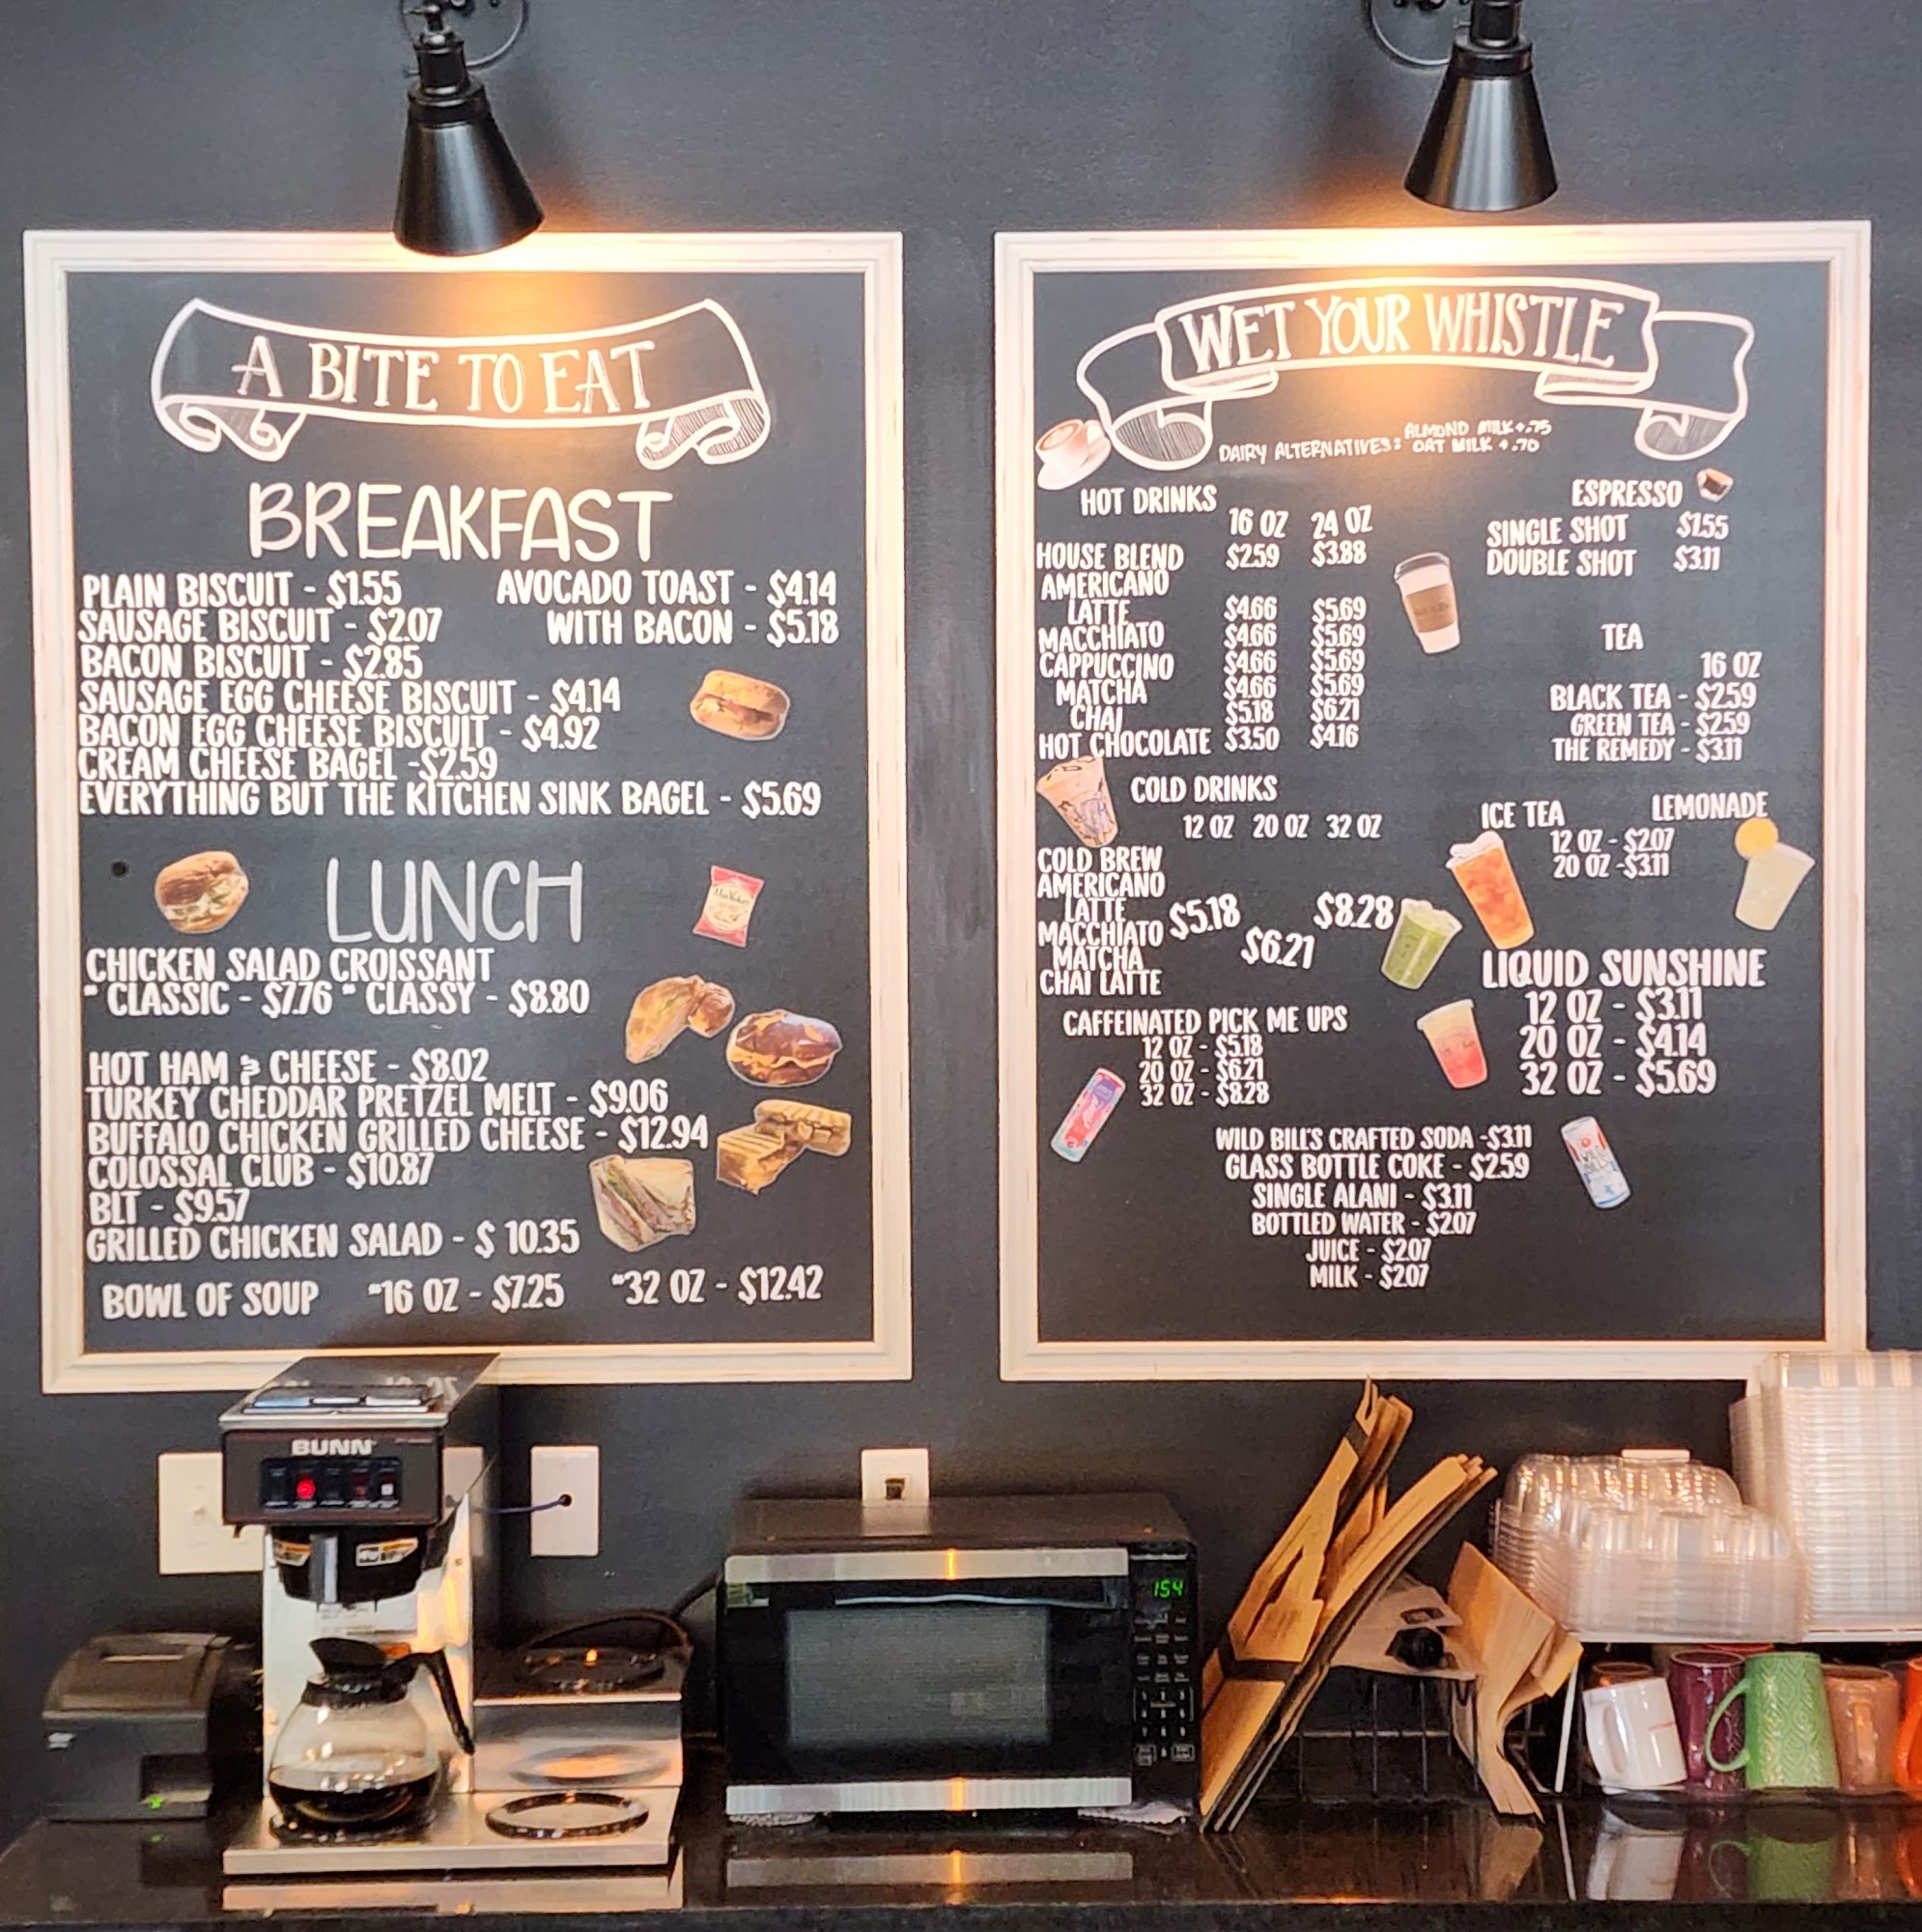 A BITE TO EAT
BREAKFAST
PLAIN BISCUIT - $1.55
SAUSAGE BISCUIT - $2.07
BACON BISCUIT - $2.85
SAUSAGE EGG CHEESE BISCUIT - $4.14
BACON EGG CHEESE BISCUIT - $4.92
CREAM CHEESE BAGEL -$2.59
EVERYTHING BUT THE KITCHEN SINK BAGEL - $5.69
AVOCADO TOAST - $4.14
WITH BACON - $5.18
LUNCH
CHICKEN SALAD CROISSANT
* CLASSIC - $7.76 * CLASSY - $8.80
HOT HAM & CHEESE - $8.02
TURKEY CHEDDAR PRETZEL MELT - $9.06
BUFFALO CHICKEN GRILLED CHEESE - $12.94
COLOSSAL CLUB - $10.87
BLT - $9.57
GRILLED CHICKEN SALAD - $ 10.35
BOWL OF SOUP *16 OZ - $7.25 *32 OZ - $12.42
WET YOUR WHISTLE
DAIRY ALTERNATIVES: ALMOND MILK +.75
OAT MILK +.70
HOT DRINKS
16 OZ 24 OZ
HOUSE BLEND $2.59 $3.88
AMERICANO
LATTE $4.66 $5.69
MACCHIATO $4.66 $5.69
CAPPUCCINO $4.66 $5.69
MATCHA $4.66 $5.69
CHAI $5.18 $6.21
HOT CHOCOLATE $3.50 $4.16
ESPRESSO
SINGLE SHOT $1.55
DOUBLE SHOT $3.11
TEA
16 OZ
BLACK TEA - $2.59
GREEN TEA - $2.59
THE REMEDY - $3.11
COLD DRINKS
12 OZ 20 OZ 32 OZ
COLD BREW
AMERICANO
LATTE
MACCHIATO
MATCHA
CHAI LATTE
$5.18 $6.21 $8.28
ICE TEA LEMONADE
12 OZ - $2.07
20 OZ -$3.11
LIQUID SUNSHINE
12 OZ - $3.11
20 OZ - $4.14
32 OZ - $5.69
CAFFEINATED PICK ME UPS
12 OZ - $5.18
20 OZ - $6.21
32 OZ - $8.28
WILD BILL'S CRAFTED SODA -$3.11
GLASS BOTTLE COKE - $2.59
SINGLE ALANI - $3.11
BOTTLED WATER - $2.07
JUICE - $2.07
MILK - $2.07
BUNN
154